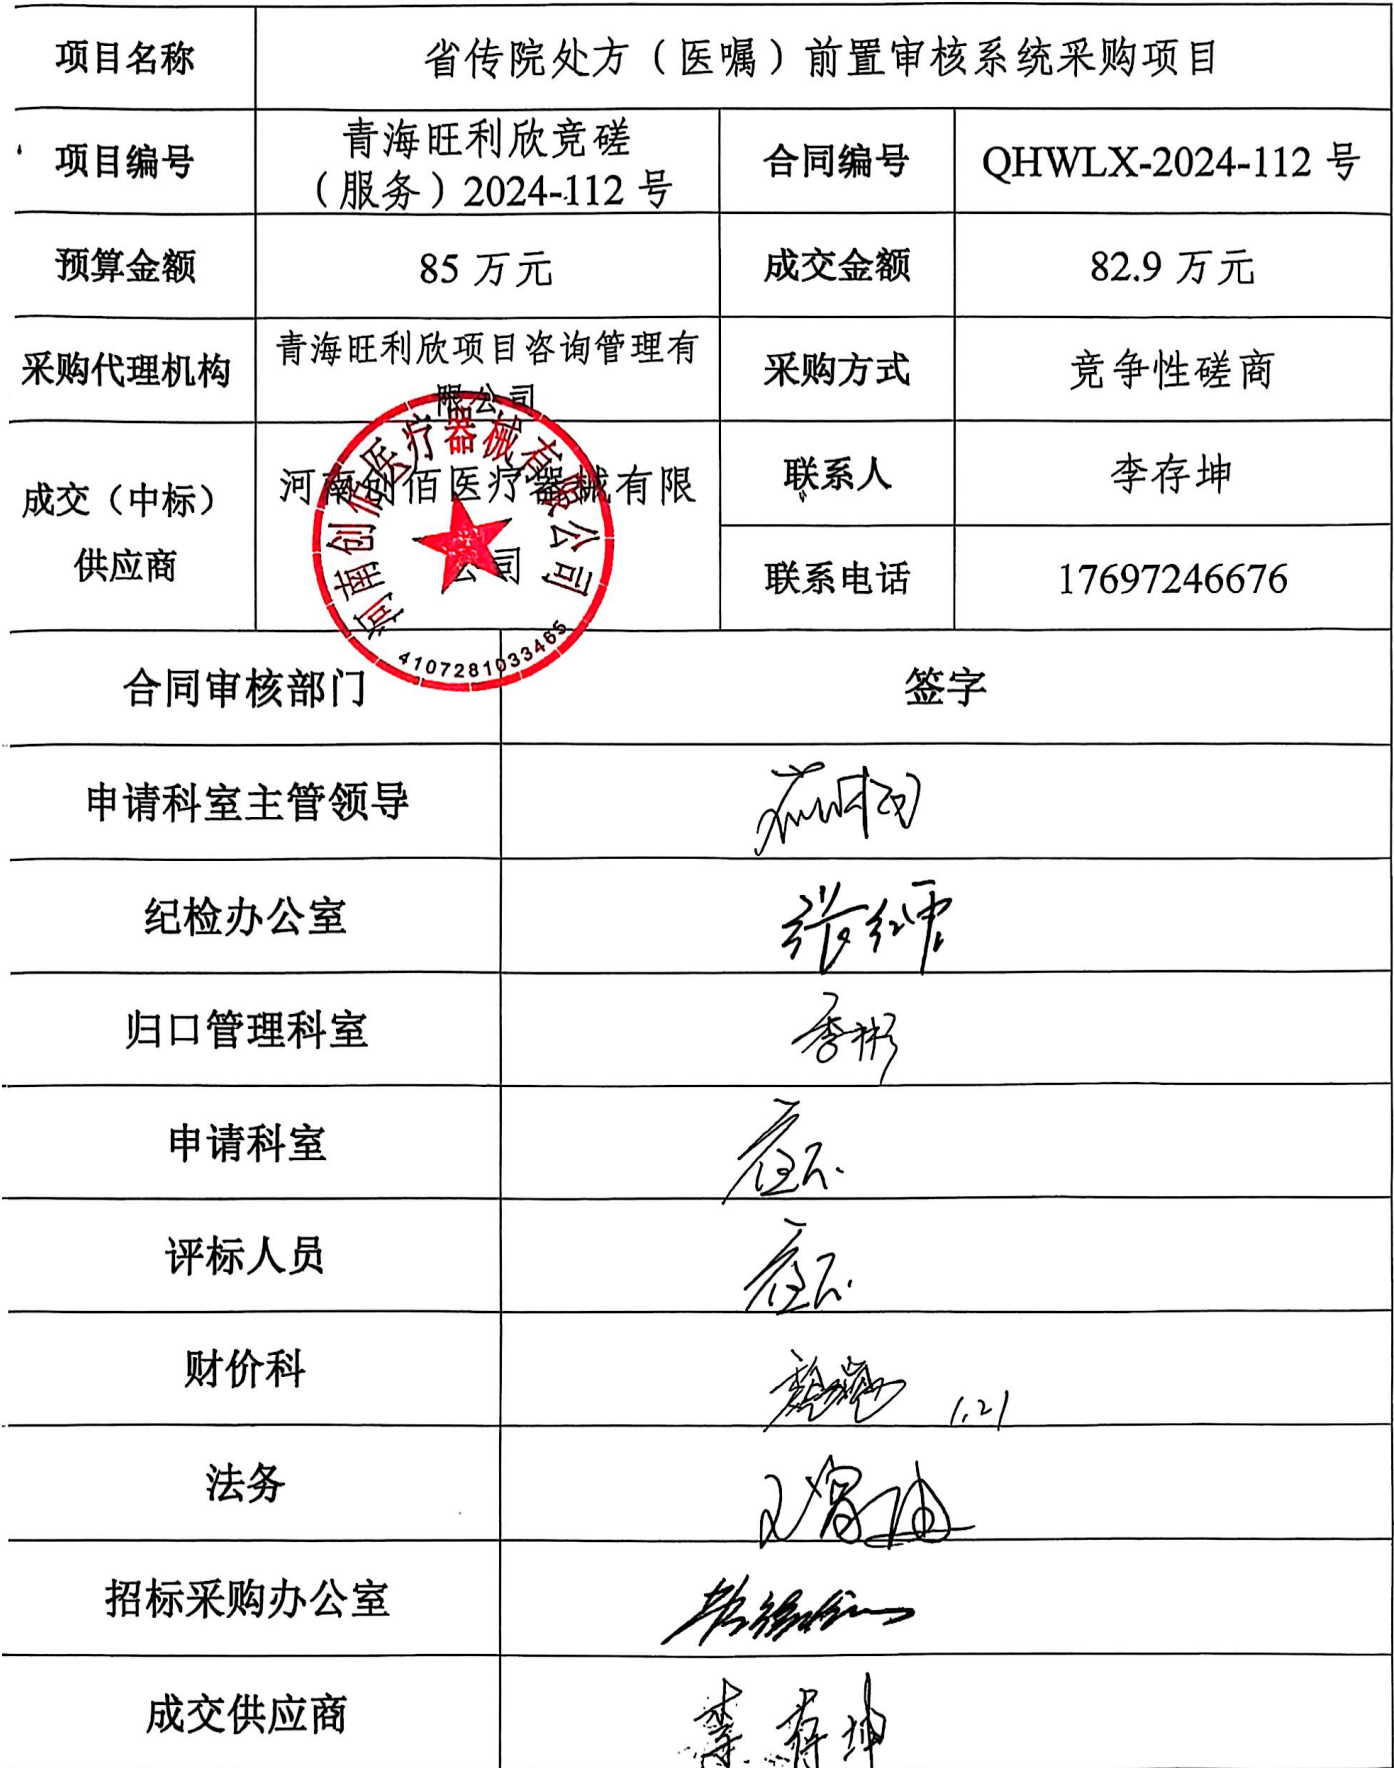 项目名称 省传院处方（医嘱）前置审核系统采购项目
项目编号 青海旺利欣竞磋
（服务）2024-112 号 合同编号 QHWLX-2024-112 号
预算金额 85 万元 成交金额 82.9 万元
采购代理机构 青海旺利欣项目咨询管理有
限公司 采购方式 竞争性磋商
成交（中标）
供应商 河南创佰医疗器械有限
公司 联系人 李存坤
联系电话 17697246676
河南创佰医疗器械有限公司
4107281033465
合同审核部门 签字
申请科室主管领导
纪检办公室
归口管理科室 季彬
申请科室
评标人员
财价科 1.21
法务
招标采购办公室
成交供应商 李存坤